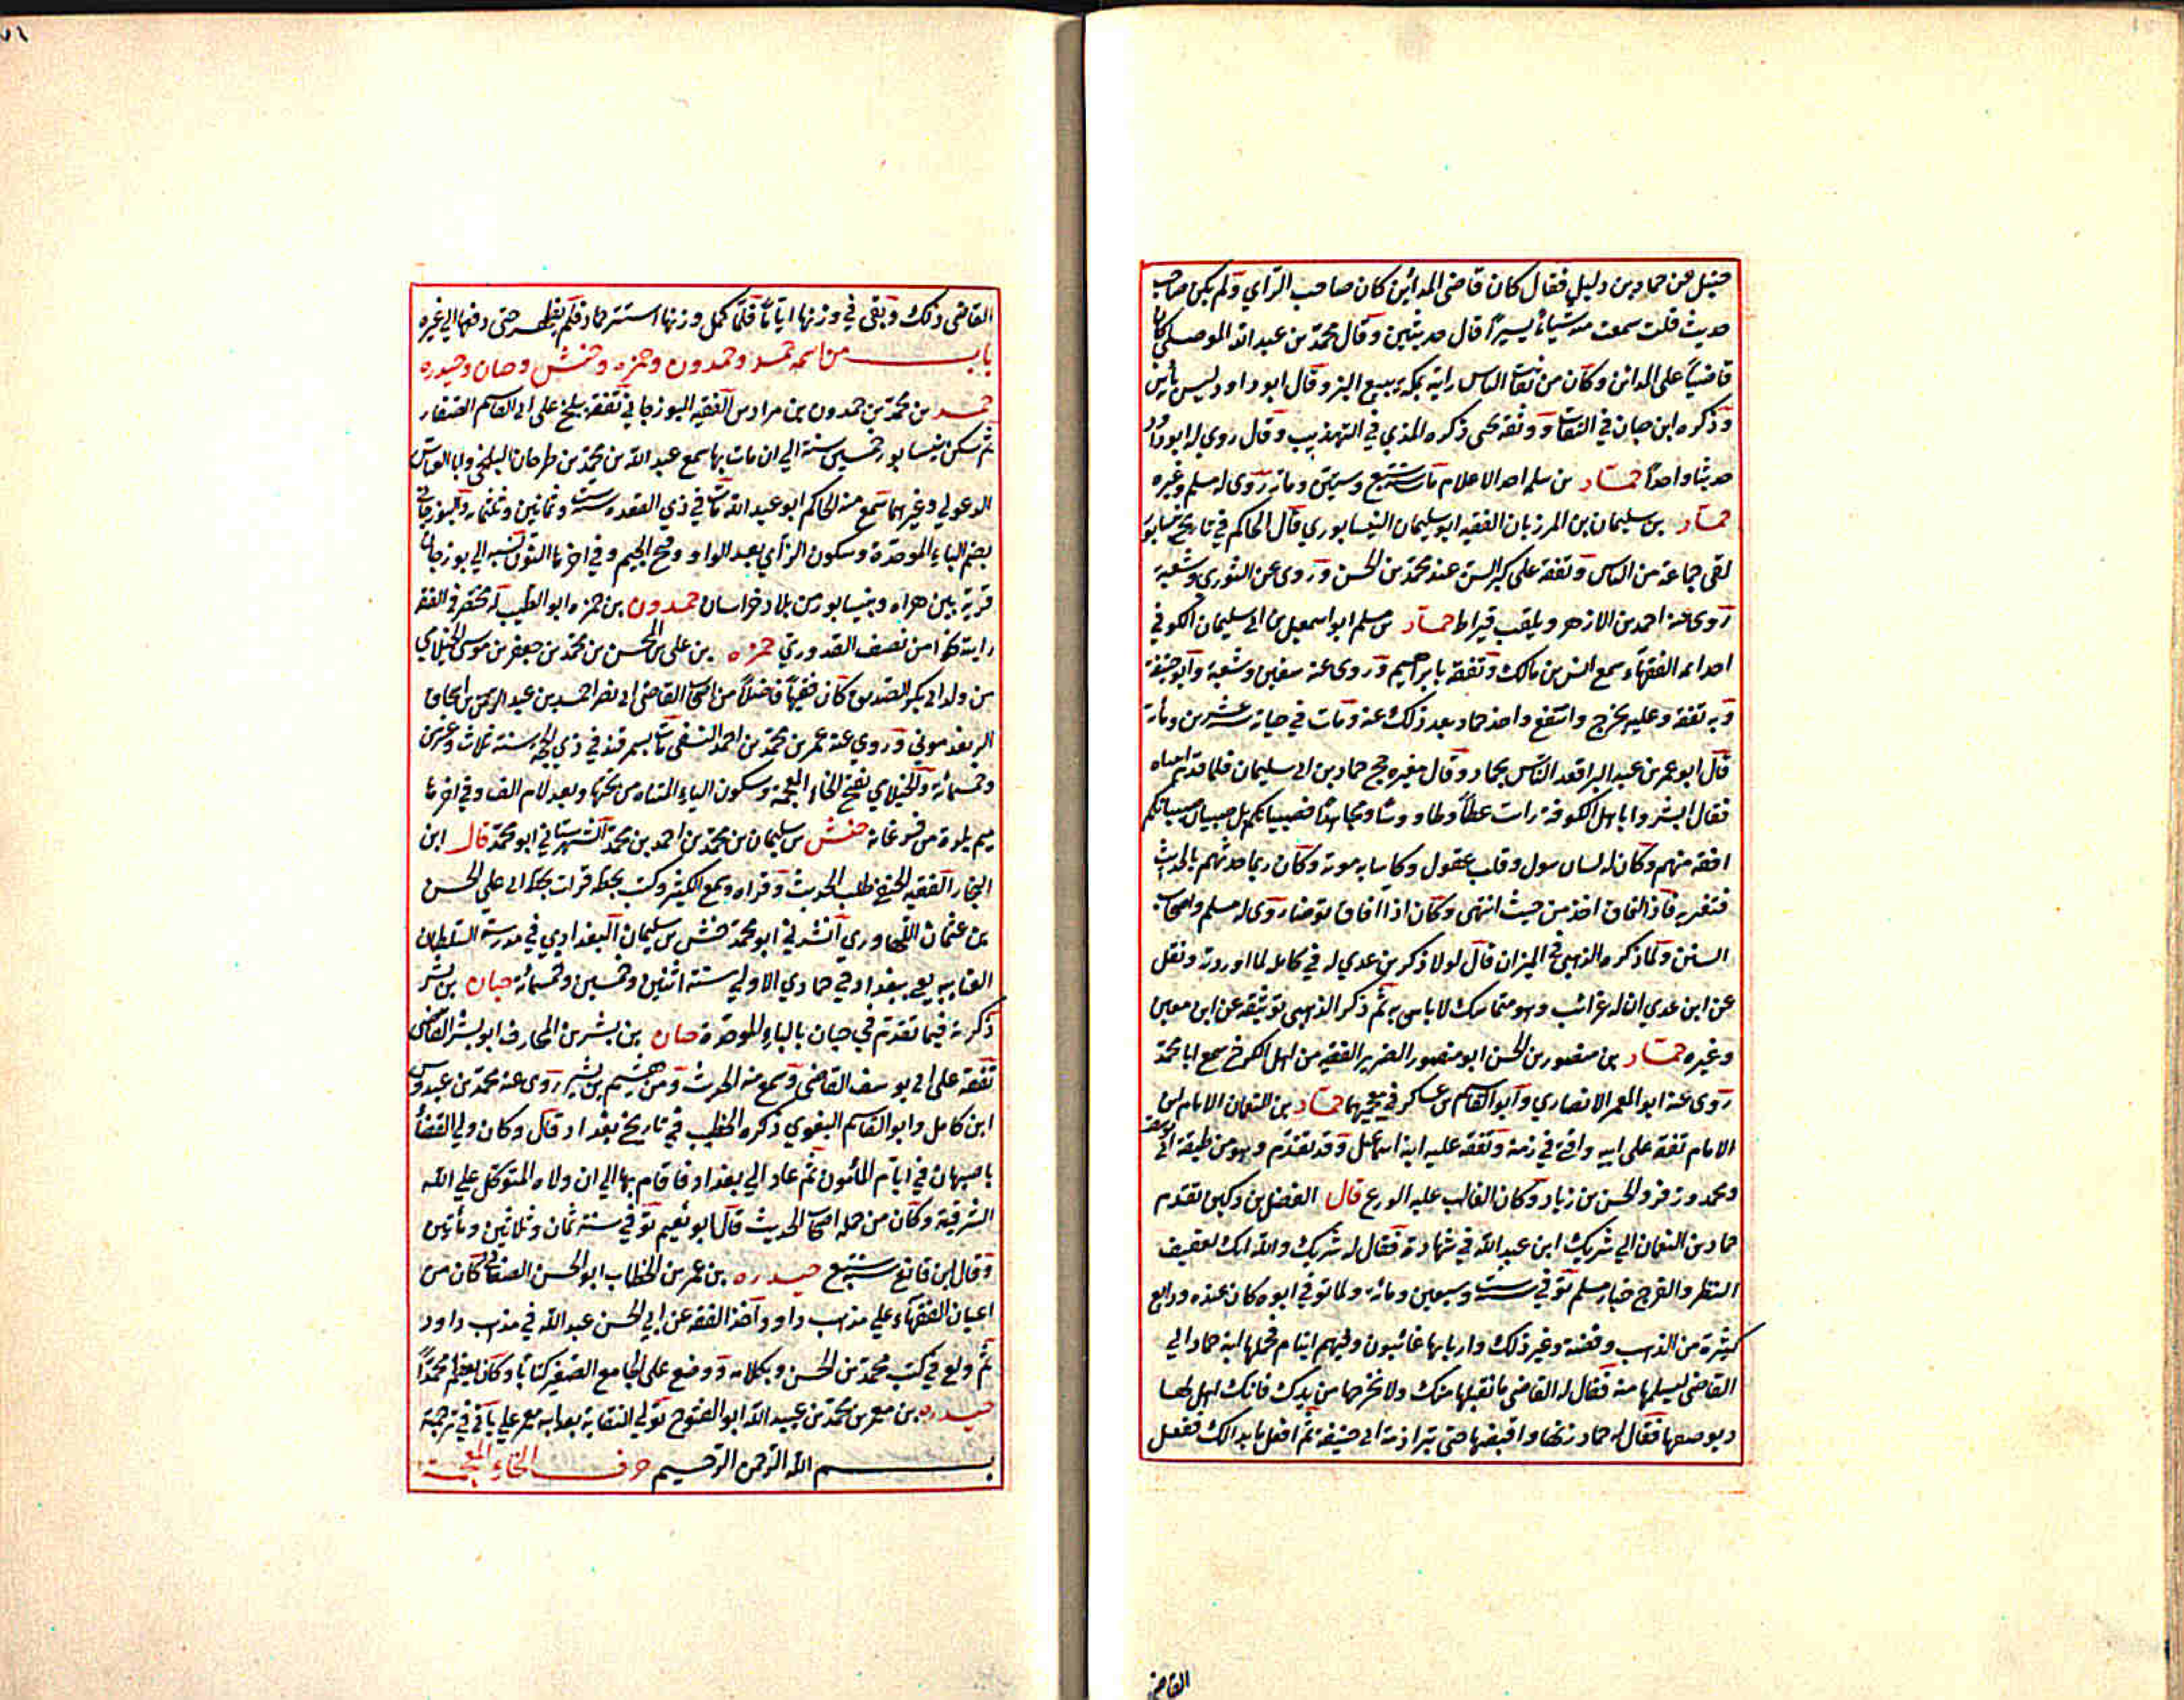 حنبل عن حماد بن دليل فقال كان قاضى المدائن كان صاحب الراي ولم يكن صاحب
حديث قلت سمعت منه شيئا يسيرا قال حديثين وقال محمد بن عبد الله الموصلي كان
قاضيا على المدائن وكان من ثقات الناس رايته بمكة يبيع البز وقال ابو داود ليس به باس
وذكره ابن حبان في الثقات ووثقه يحيى ذكره المزي في التهذيب وقال روى له ابو داود
حديثا واحدا حماد بن سلمه احد الاعلام مات سنة سبع وستين ومائة روى له مسلم وغيره
حماد بن سليمان بن المرزبان الفقيه ابو سليمان النيسابوري قال الحاكم في تاريخ نيسابور
لقى جماعة من الناس وتفقه على كبر السن عند محمد بن الحسن وروى عن الثوري وشعبة
روى عنه احمد بن الازهر ويلقب قيراط حماد بن مسلم ابو اسمعيل بن ابي سليمان الكوفي
احد ائمة الفقهاء سمع انس بن مالك وتفقه بابراهيم وروى عنه سفين وشعبة وابو حنيفة
وبه تفقه وعليه تخرج وانتفع واخذ حماد بعد ذلك عنه ومات في حياته سنة عشرين ومائة
قال ابو عمر بن عبد البر اقعد الناس بحماد وقال مغيرة حج حماد بن ابي سليمان فلما قدم اتيناه
فقال ابشروا يا اهل الكوفة رايت عطاء وطاووسا ومجاهدا فصبيانكم بل صبيان صبيانكم
افقه منهم وكان له لسان سول وقلب عقول وكانت به موتة وكان ربما حدثهم بالحديث
فتعتريه فاذا افاق اخذ من حيث انتهى وكان اذا افاق توضا روى له مسلم واصحاب
السنن ولما ذكره الذهبي في الميزان قال لولا ذكر بن عدي له في كامله لما اوردته ونقل
عن ابن عدي ان له غرائب وهو متماسك لا باس به ثم ذكر الذهبي توثيقه عن ابن معين
وغيره حماد بن منصور بن الحسن ابو منصور الضرير الفقيه من اهل الكرخ سمع ابا محمد
روى عنه ابو المعمر الانصاري وابو القاسم بن عساكر في معجميهما حماد بن النعمان الامام ابن
الامام تفقه على ابيه وافتى في زمنه وتفقه عليه ابنه اسماعيل وقد تقدم وهو من طبقة ابي يوسف
ومحمد وزفر والحسن بن زياد وكان الغالب عليه الورع قال الفضل بن دكين تقدم
حماد بن النعمان الي شريك ابن عبد الله في شهادة فقال له شريك والله انك لعفيف
النظر والفرج خيار مسلم توفي سنة ست وسبعين ومائة ولما توفي ابوه كان عنده ودايع
كثيرة من الذهب وفضة وغير ذلك واربابها غائبون وفيهم ايتام فحملها ابنه حماد الي
القاضى ليسلمها منه فقال له القاضى ما نقبلها منك ولا نخرجها من يدك فانك اهل لها
وموضعها فقال له حماد زنها واقبضها حتى تبرا ذمة ابي حنيفة ثم افعل ما بدا لك ففعل
القاضى
القاضى ذلك وبقى في وزنها اياما فلما كمل وزنها استتر حماد فلم يظهر حتى دفعها الي غيره
باب من اسمه حمد وحمدون وحمزه وحنش وحيان وحيدره
حمد بن محمد بن حمدون بن مرادس الفقيه البوزجاني تفقه ببلخ على ابي القاسم الصفار
ثم سكن نيسابور خمسين سنة الي ان مات بها سمع عبد الله بن محمد بن طرخان البلخي وابا العباس
الدعولي وغيرهما سمع منه الحاكم ابو عبد الله مات في ذي القعده سنة ست وثمانين وثلثمائه والبوزجاني
بضم الباء الموحدة وسكون الزاي بعد الواو وفتح الجيم وفي اخرها النون نسبه الي بوزجان
قرية بين هراه ونيسابور من بلاد خراسان حمدون بن حمزه ابو الطيب له مختصر في الفقه
رايته نحوا من نصف القدوري حمزه بن على بن المحسن بن محمد بن جعفر بن موسى الخيلامي
من ولد ابي بكر الصديق كان فقيها فاضلا من اصحاب القاضى ابي نصر احمد بن عبد الرحمن بن اسحاق
الريغدموني وروي عنه عمر بن محمد بن احمد النسفي مات بسمرقند في ذي الحجة سنة ثلاث وعشرين
وخمسمائة والخيلامي بفتح الخاء المعجمة وسكون الياء المثناه من تحتها وبعد لام الف وفي اخرها
ميم بلدة من فرغانة حنش بن سليمان بن محمد بن احمد بن محمد الشهرستاني ابو محمد قال ابن
النجار الفقيه الحنفي طلب الحديث وقراه وسمع الكثير وكتب بخطه قرات بخط ابي علي الحسن
بن عثمان اللهاوري انشدني ابو محمد حنش بن سليمان البغدادي في مدرسة السلطان
الغياثيه يعني ببغداد في جمادي الاولي سنة اثنين وخمسين وخمسمائة حيان بن بشر
ذكرته فيما تقدم في حبان بالباء الموحدة حيان بن بشر بن المخارق ابو بشر القاضى
تفقه على ابي يوسف القاضى وسمع منه الحديث ومن هشيم بن بشير روى عنه محمد بن عبدوس
ابن كامل وابو القاسم البغوي ذكره الخطيب في تاريخ بغداد قال وكان ولي القضا
باصبهان في ايام المامون ثم عاد الي بغداد فاقام بها الي ان ولاه المتوكل علي الله
الشرقية وكان من جملة اصحاب الحديث قال ابو نعيم توفي سنة ثمان وثلاثين ومائتين
وقال ابن قانع سنة سبع حيدره بن عمر بن الخطاب ابو الحسن الصغاني كان من
اعيان الفقهاء علي مذهب داود اخذ الفقه عن ابي الحسن عبد الله في مذهب داود
ثم ولع في كتب محمد بن الحسن وبكلامه ووضع على الجامع الصغير كتابا وكان يعظم محمدا
حيدره بن معمر بن محمد بن عبيد الله ابو الفتوح تولي النقابة بعد ابيه معمر علي ما ياتي في ترجمة
بسم الله الرحمن الرحيم حرف الخاء المعجمة